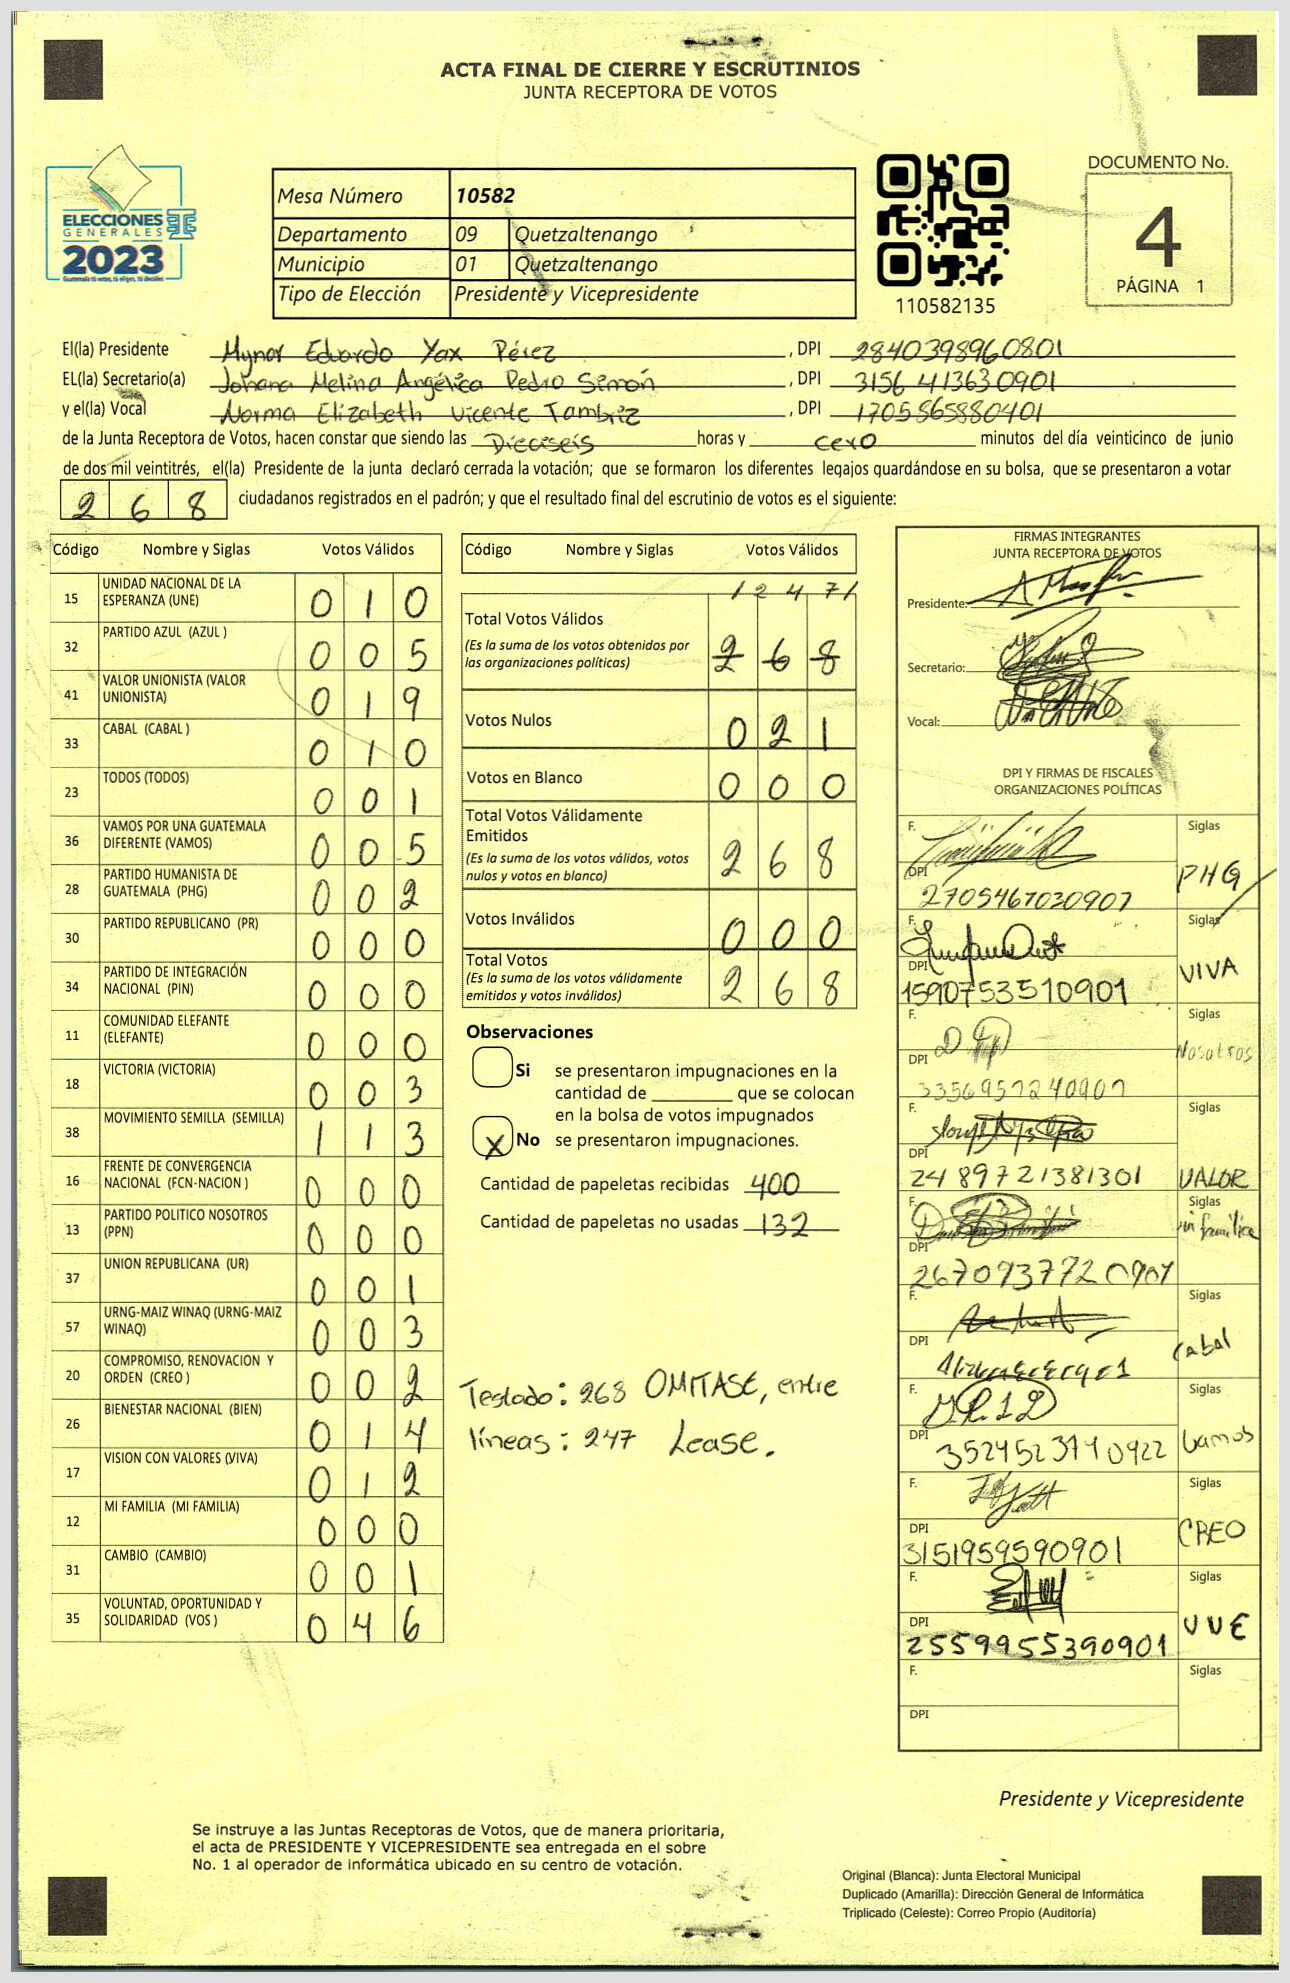 ACTA FINAL DE CIERRE Y ESCRUTINIOS
JUNTA RECEPTORA DE VOTOS
ELECCIONES
GENERALES
2023
Mesa Número 10582
Departamento 09 Quetzaltenango
Municipio 01 Quetzaltenango
Tipo de Elección Presidente y Vicepresidente
110582135
DOCUMENTO No.
4
PÁGINA 1
El(la) Presidente Mynor Eduardo Yax Pérez , DPI 2840398960801
EL(la) Secretario(a) Johana Melina Angélica Pedro Simón , DPI 3156413630901
y el(la) Vocal Norma Elizabeth Vicente Tambriz , DPI 1705865880401
de la Junta Receptora de Votos, hacen constar que siendo las Dieciseis horas y cero minutos del día veinticinco de junio
de dos mil veintitrés, el(la) Presidente de la junta declaró cerrada la votación; que se formaron los diferentes legajos guardándose en su bolsa, que se presentaron a votar
268 ciudadanos registrados en el padrón; y que el resultado final del escrutinio de votos es el siguiente:
Código Nombre y Siglas Votos Válidos
15 UNIDAD NACIONAL DE LA ESPERANZA (UNE) 010
32 PARTIDO AZUL (AZUL ) 005
41 VALOR UNIONISTA (VALOR UNIONISTA) 019
33 CABAL (CABAL ) 010
23 TODOS (TODOS) 001
36 VAMOS POR UNA GUATEMALA DIFERENTE (VAMOS) 005
28 PARTIDO HUMANISTA DE GUATEMALA (PHG) 002
30 PARTIDO REPUBLICANO (PR) 000
34 PARTIDO DE INTEGRACIÓN NACIONAL (PIN) 000
11 COMUNIDAD ELEFANTE (ELEFANTE) 000
18 VICTORIA (VICTORIA) 003
38 MOVIMIENTO SEMILLA (SEMILLA) 113
16 FRENTE DE CONVERGENCIA NACIONAL (FCN-NACION ) 000
13 PARTIDO POLITICO NOSOTROS (PPN) 000
37 UNION REPUBLICANA (UR) 001
57 URNG-MAIZ WINAQ (URNG-MAIZ WINAQ) 003
20 COMPROMISO, RENOVACION Y ORDEN (CREO ) 002
26 BIENESTAR NACIONAL (BIEN) 014
17 VISION CON VALORES (VIVA) 012
12 MI FAMILIA (MI FAMILIA) 000
31 CAMBIO (CAMBIO) 001
35 VOLUNTAD, OPORTUNIDAD Y SOLIDARIDAD (VOS ) 046
Código Nombre y Siglas Votos Válidos
/ 2 4 7 /
Total Votos Válidos 268
(Es la suma de los votos obtenidos por
las organizaciones políticas)
Votos Nulos 021
Votos en Blanco 000
Total Votos Válidamente
Emitidos 268
(Es la suma de los votos válidos, votos
nulos y votos en blanco)
Votos Inválidos 000
Total Votos 268
(Es la suma de los votos válidamente
emitidos y votos inválidos)
Observaciones
Si se presentaron impugnaciones en la
cantidad de ________ que se colocan
en la bolsa de votos impugnados
X No se presentaron impugnaciones.
Cantidad de papeletas recibidas 400
Cantidad de papeletas no usadas 132
Testado: 268 OMITASE, entre
líneas: 247 Lease.
FIRMAS INTEGRANTES
JUNTA RECEPTORA DE VOTOS
Presidente:
Secretario:
Vocal:
DPI Y FIRMAS DE FISCALES
ORGANIZACIONES POLÍTICAS
F. Siglas
DPI 2705467030907 PHG
F. Siglas
DPI 1590753510901 VIVA
F. Siglas
DPI 3356957240907 Nosotros
F.
DPI 2489721381301 VALOR
F. Siglas
DPI 2670937720901 mi familia
F. Siglas
DPI Cabal
F. Siglas
DPI 3524523740922 Vamos
F. Siglas
DPI 3151959590901 CREO
F. Siglas
DPI 2559955390901 UNE
F. Siglas
DPI
Presidente y Vicepresidente
Se instruye a las Juntas Receptoras de Votos, que de manera prioritaria,
el acta de PRESIDENTE Y VICEPRESIDENTE sea entregada en el sobre
No. 1 al operador de informática ubicado en su centro de votación.
Original (Blanca): Junta Electoral Municipal
Duplicado (Amarilla): Dirección General de Informática
Triplicado (Celeste): Correo Propio (Auditoría)